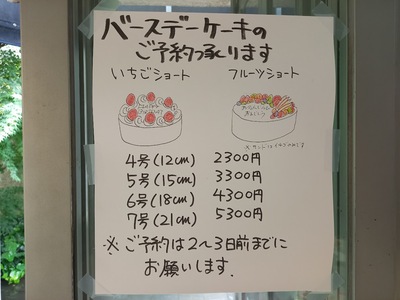 バースデーケーキの
ご予約承ります
いちごショート
フルーツショート
4号(12cm) 2300円
5号(15cm) 3300円
6号(18cm) 4300円
7号(21cm) 5300円
※ご予約は2〜3日前までに
お願いします.